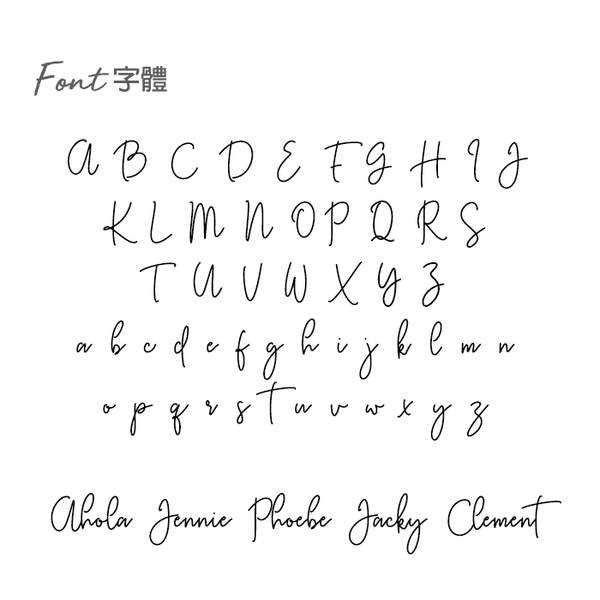 Font 字體
A B C D E F G H I J
K L M N O P Q R S
T U V W X Y Z
a b c d e f g h i j k l m n
o p q r s t u v w x y z
Ahola Jennie Phoebe Jacky Clement